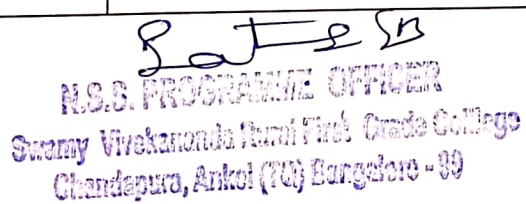 N.S.S. PROGRAMME OFFICER
Swamy Vivekananda Rural First Grade College
Chandapura, Ankel (TQ) Bangalore - 99